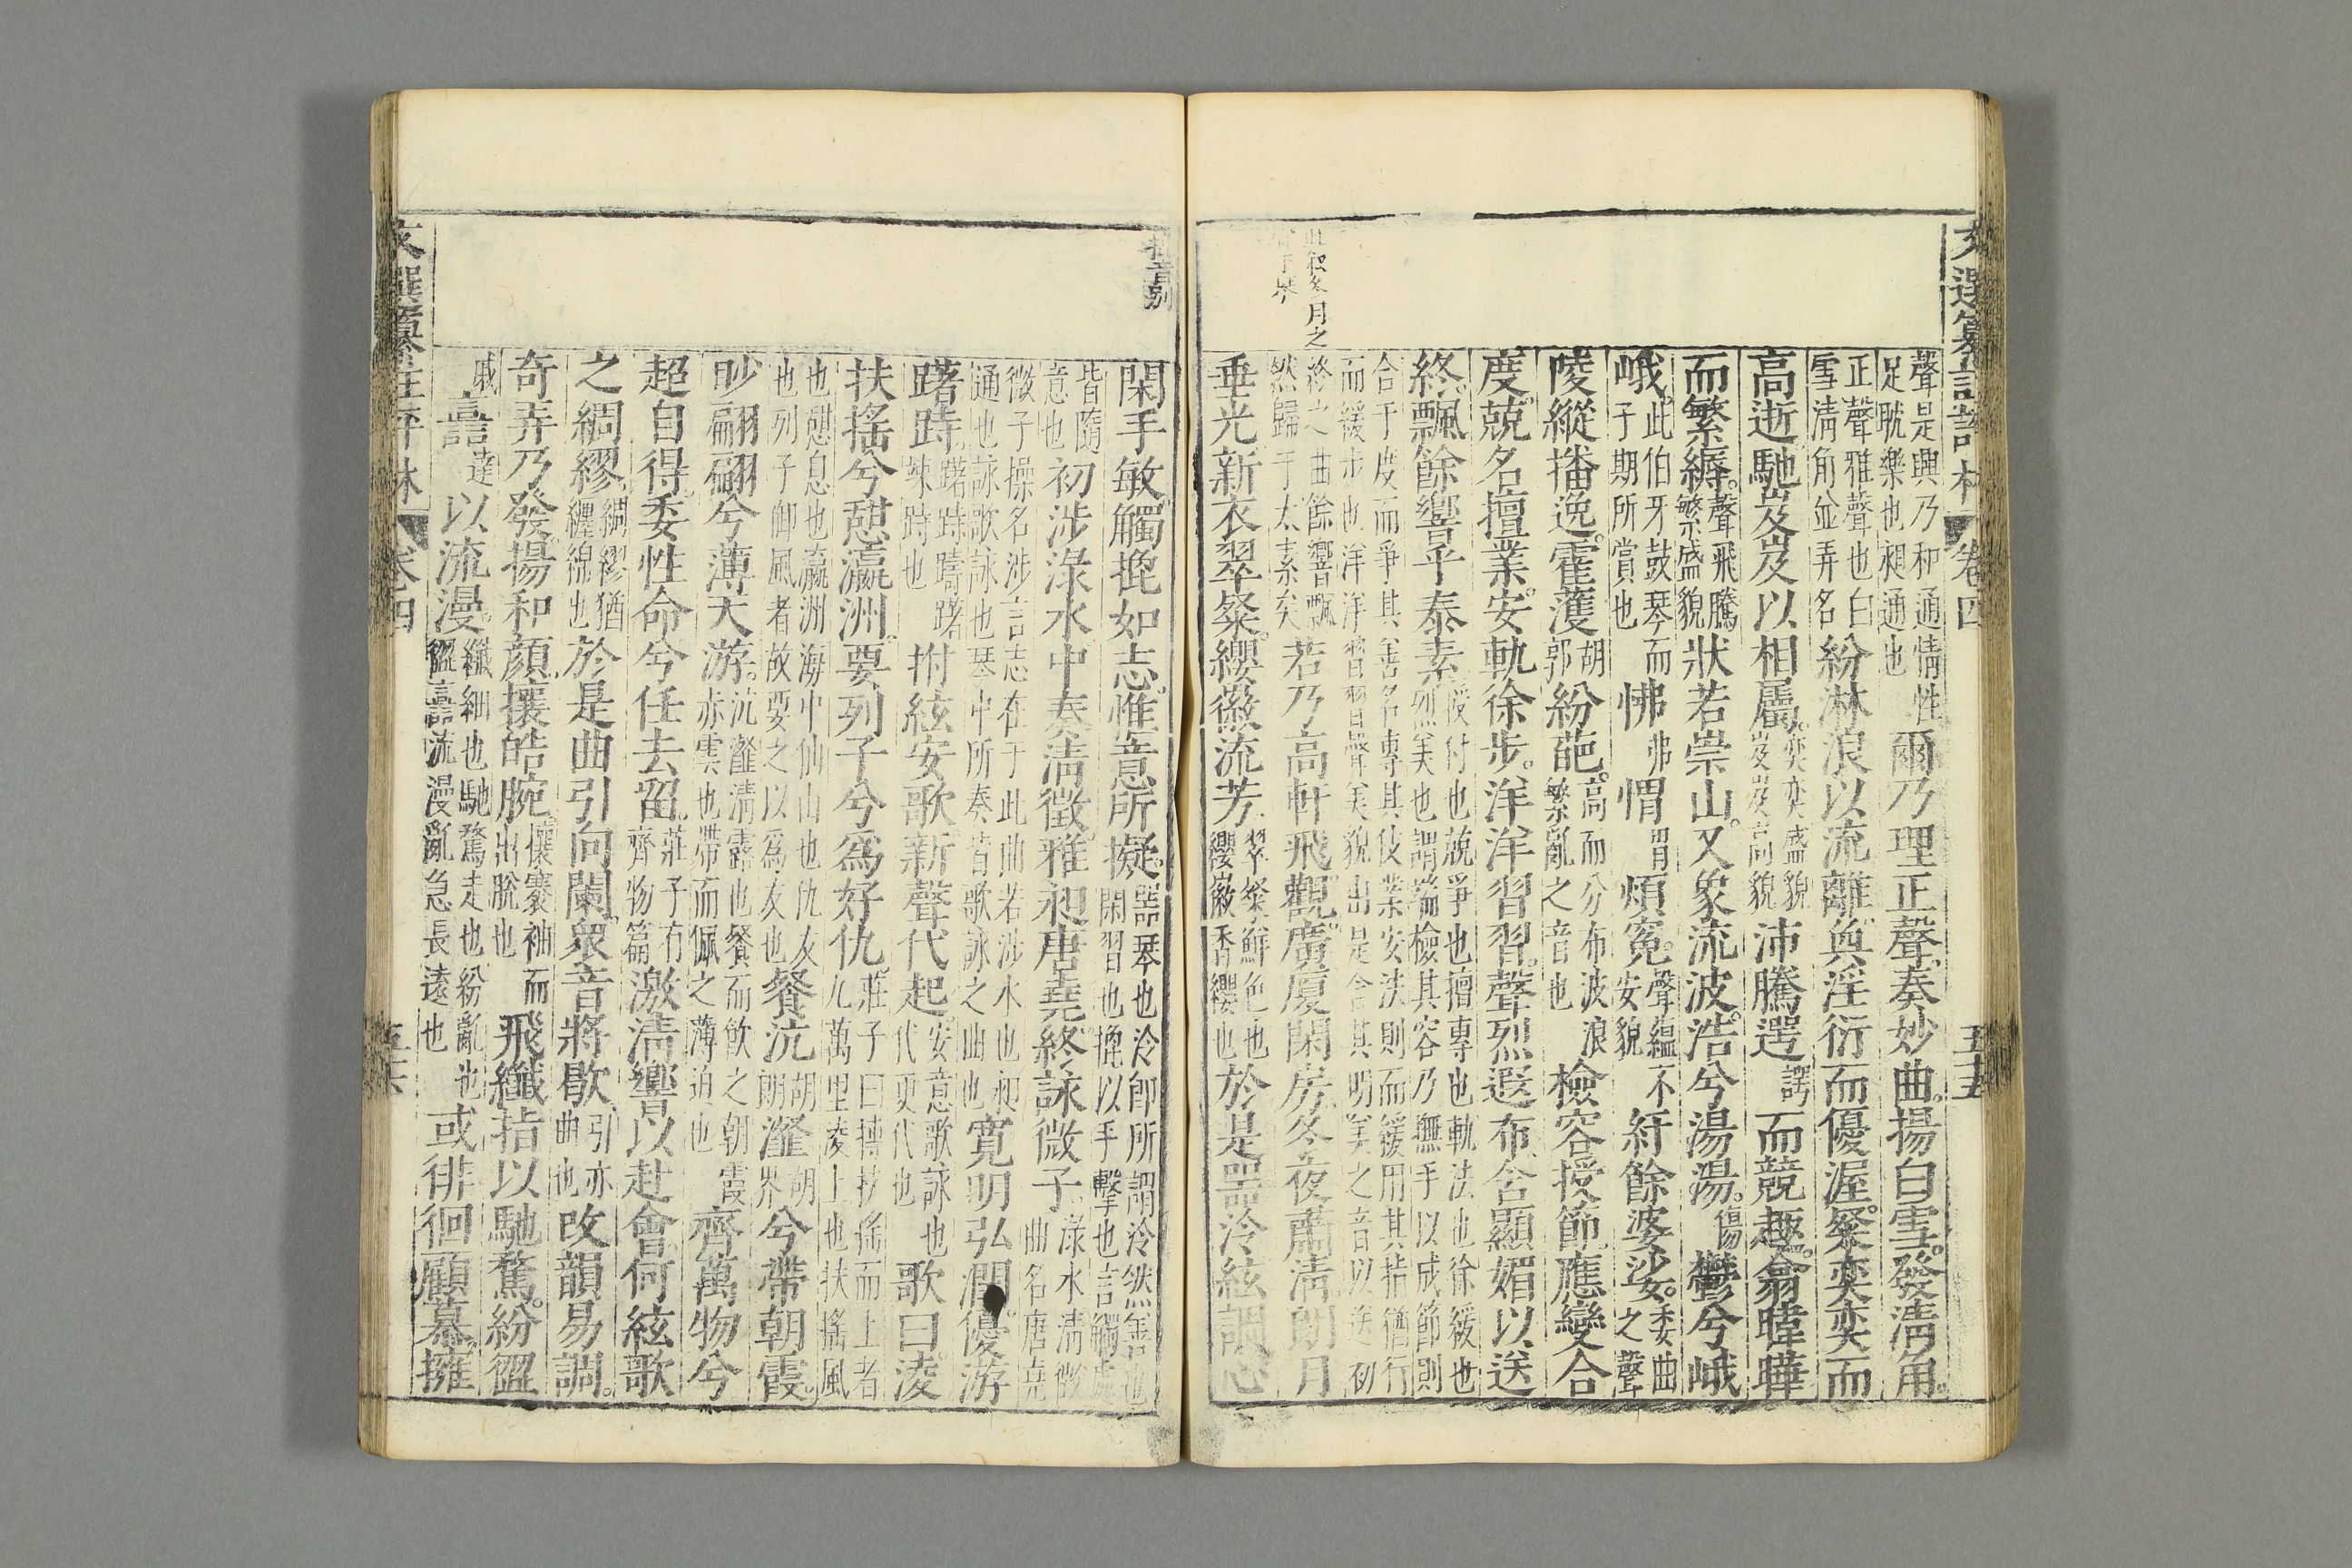 文選纂註評林
卷四
五十五
聲是與乃和通情性
足耽樂也昶通也
爾乃理正聲奏妙曲。揚白雪。發清角。
正聲雅聲也白
雪清角並弄名
紛淋浪以流離。奐淫衍而優渥。粲奕奕而
高逝。馳岌岌以相屬。
奕奕盛貌
岌岌高貌
沛騰遌
諤
而競趣。翕韡曄
而繁縟。
聲飛騰
繁盛貌
狀若崇山。又象流波。浩兮湯湯。
傷
鬱兮峨
峨。
此伯牙鼓琴而
子期所賞也
怫
弗
㥜
胃
煩冤。
聲蘊不
安貌
紆餘婆娑。
委曲
之聲
陵縱播逸。霍濩
胡
郭
紛葩。
高而分布波浪
繁亂之音也
檢容授節。應變合
度。兢名擅業。安軌徐步。洋洋習習。聲烈遐布。含顯媚以送
終。飄餘響乎泰素
授付也兢爭也擅專也軌法也徐緩也
烈美也謂端檢其容乃撫手以成節則
合于度而爭其善名專其伎業安法則而緩用其指猶行
而緩步也洋洋習習聲美貌出是含其明美之音以送初
終之曲餘響飄
然歸于太素矣
若乃高軒飛觀。廣廈閑房。冬夜肅清。朗月
此叙冬月之
垂光。新衣翠粲。纓徽流芳。
翠粲鮮色也
纓徽香纓也
於是噐泠絃調。心
閑手敏。觸㩢如志。惟意所擬。
噐琴也泠卽所謂泠然善也
閑習也㩢以手擊也言觸處
皆隨
意也
初涉淥水。中奏清徵。雅昶唐堯。終詠微子。
淥水清徵
曲名唐堯
微子操名涉言志在于此曲若涉水也昶
通也詠歌詠也琴中所奏皆歌詠之曲也
寛明弘潤。優游
躇跱。
躇跱躊躇
竦跱也
拊絃安歌。新聲代起。
安意歌詠也
代更代也
歌曰。凌
扶搖兮憇瀛洲。要列子兮爲好仇。
莊子曰摶扶搖而上者
九萬里凌上也扶搖風
也憇息也瀛洲海中仙山也仇友
也列子御風者故要之以爲友也
餐沆
胡
朗
瀣
胡
界
兮帶朝霞。
眇翩翩兮薄天游。
沆瀣清露也餐而飲之朝霞
赤雲也帶而佩之薄迫也
齊萬物兮
超自得。委性命兮任去留。
莊子有
齊物篇
激清響以赴會。何絃歌
之綢繆。
綢繆猶
纏綿也
於是曲引向闌。衆音將歇。
引亦
曲也
改韻易調。
奇弄乃發。揚和顔。攘皓腕。
攘褰袖而
出脫也
飛纖指以馳騖。紛𠎷
戚
𧮼
逹
以流漫。
纖細也馳騖走也紛亂也
𠎷𧮼流漫亂急長遠也
或徘徊顧慕。擁
文選纂註評林
卷四
五十六